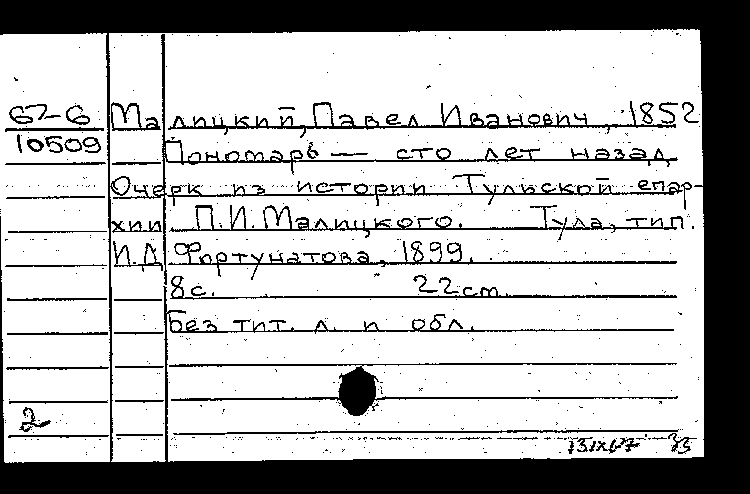 62-6 Малицкий, Павел Иванович, 1852
10509 Пономарь — сто лет назад
Очерк из истории Тульской епар-
хии П.И.Малицкого. Тула, тип.
И.Д Фортунатова, 1899.
8с. 22 cm.
Без тит. л. и обл.
2